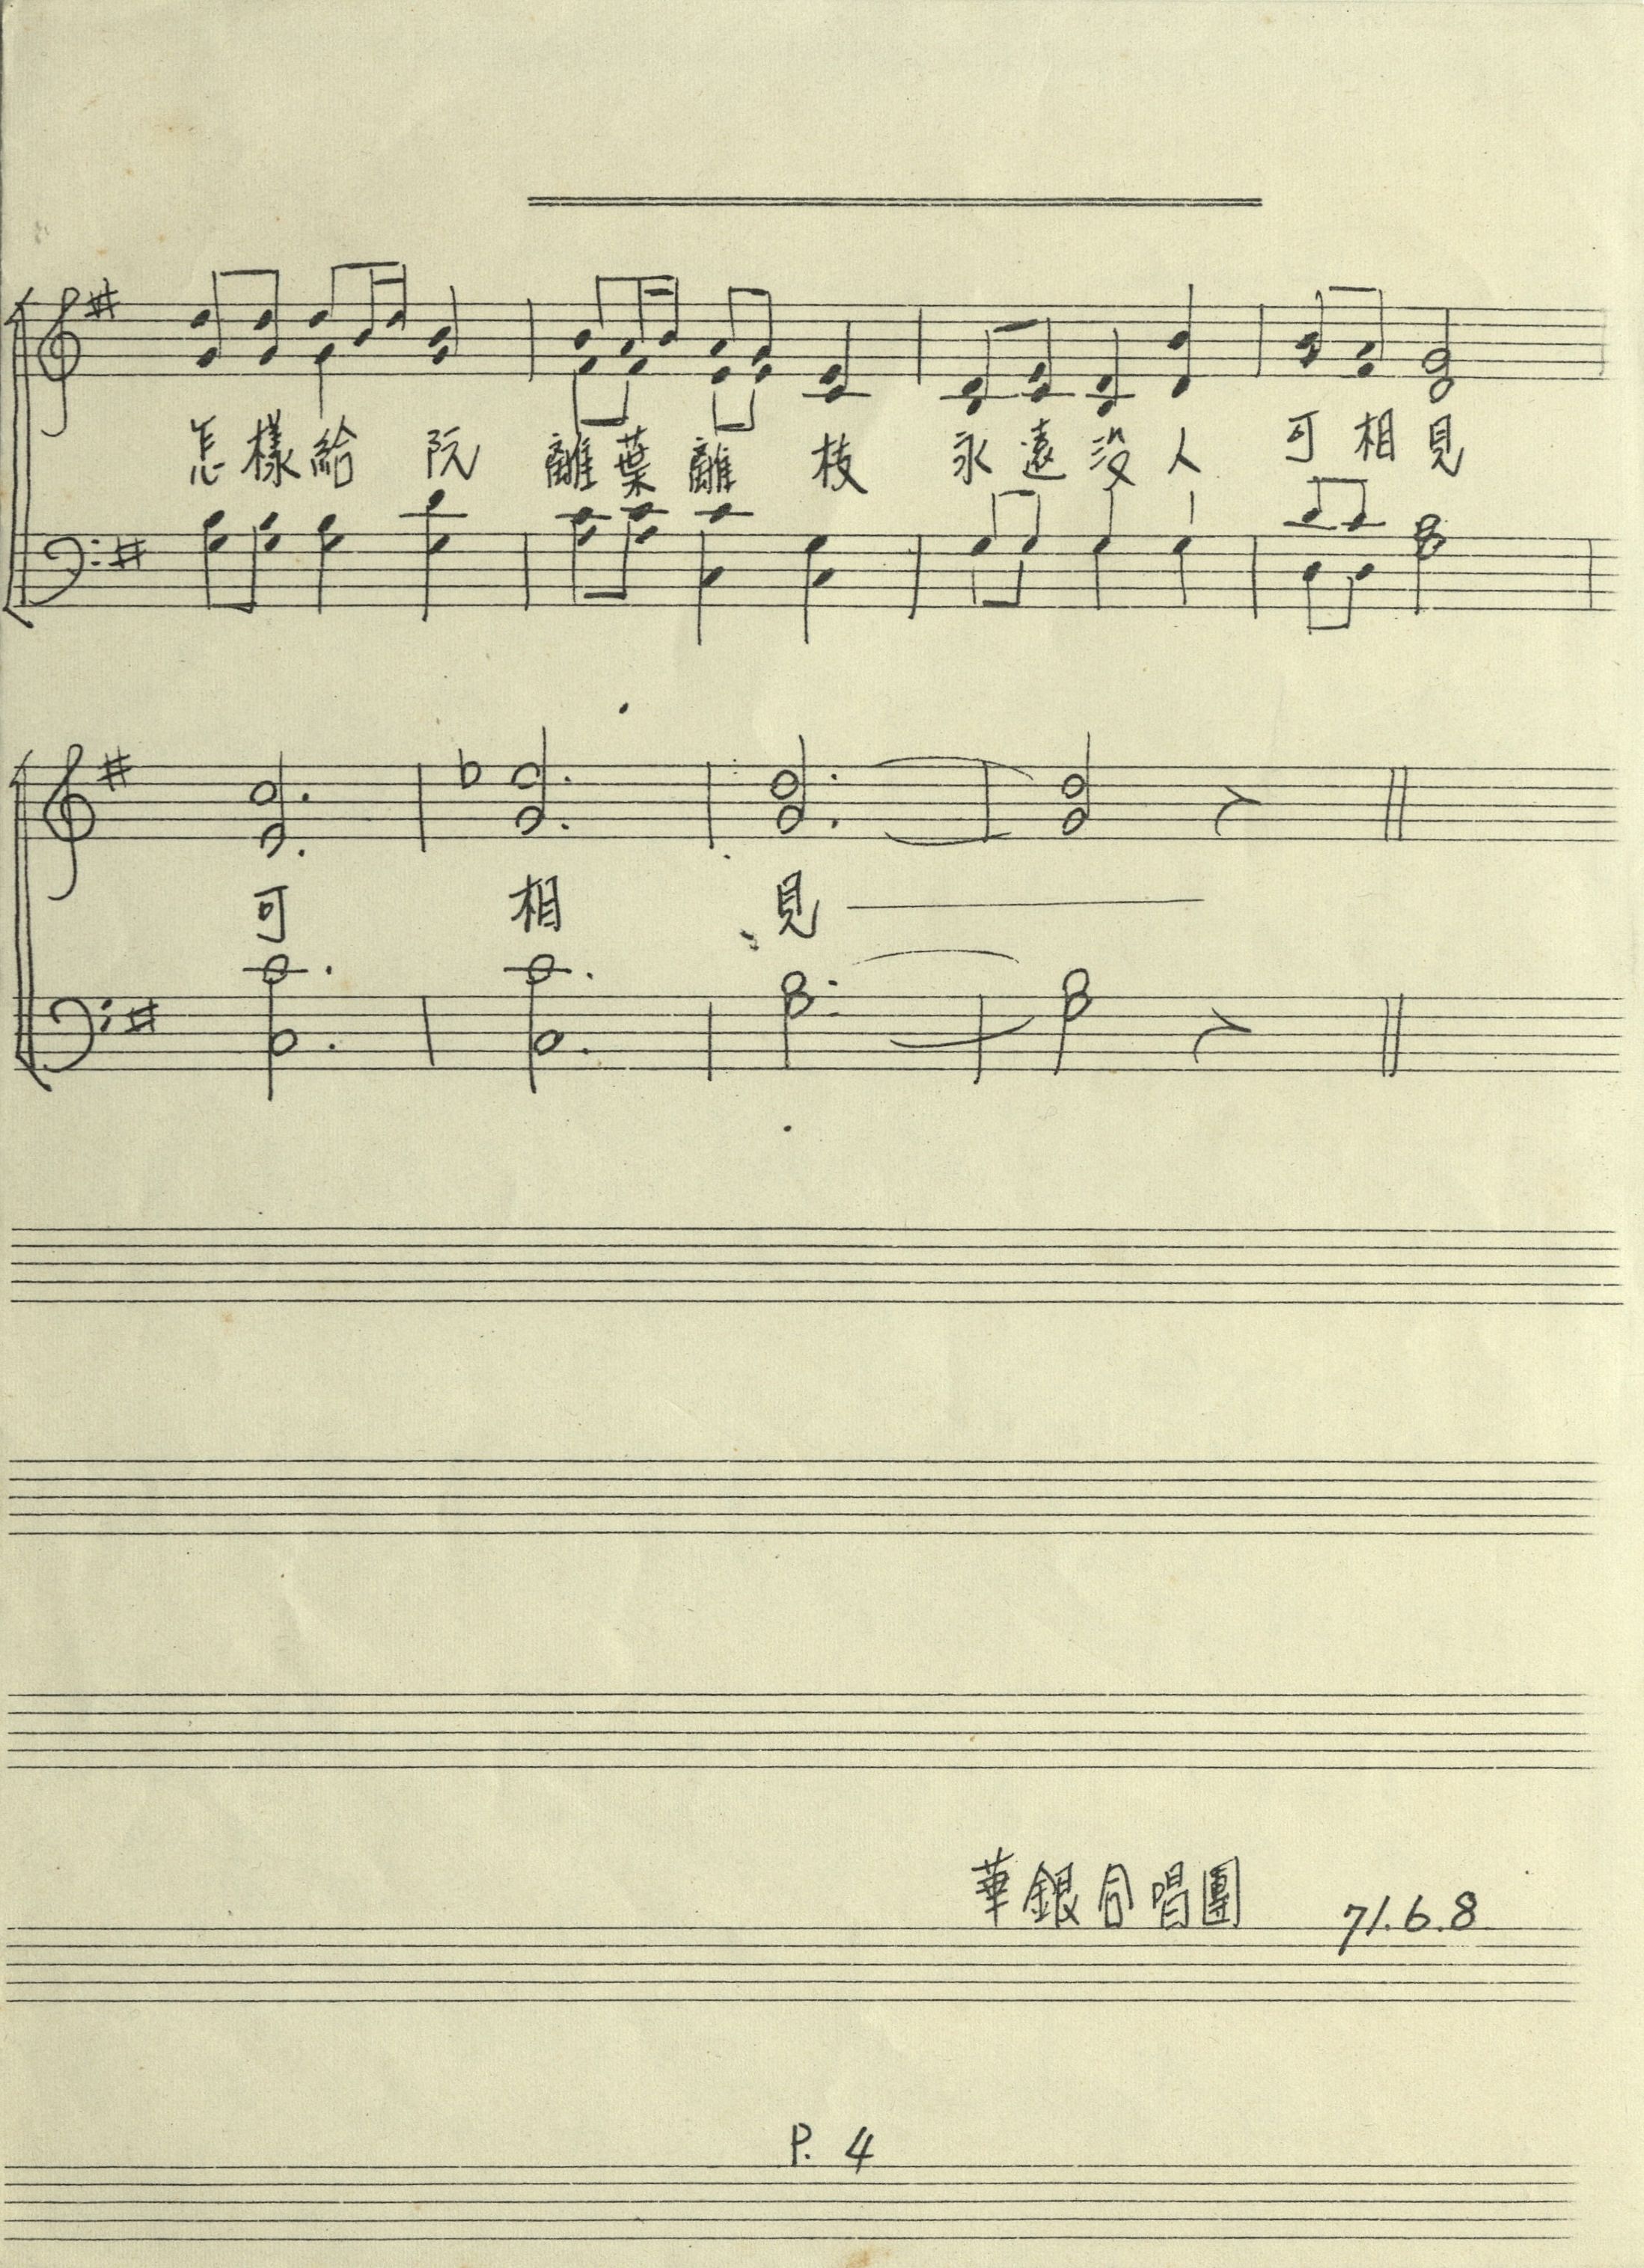 怎樣給 阮 離葉離 枝 永遠沒人 可相見
可 相 見
華銀合唱團 71.6.8
P. 4